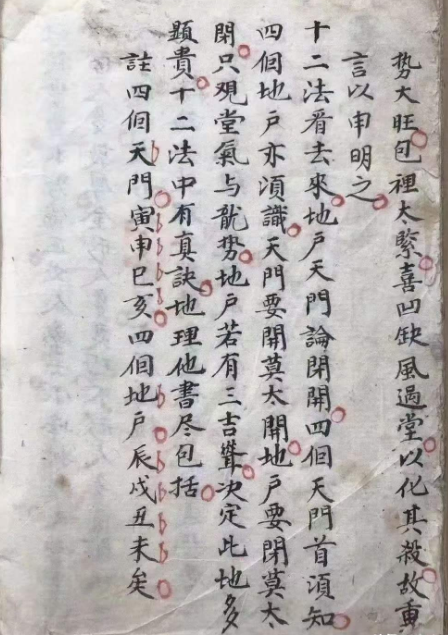 势大旺包裡太緊喜凹缺風過堂以化其殺故重
言以申明之
十二法看去來地戶天門論閉開四個天門首須知
四個地戶亦須識天門要開莫太開地戶要閉莫太
閉只观堂氣与龍势地戶若有三吉聳决定此地多
顕貴十二法中有真訣地理他書尽包括
註四個天門寅申巳亥四個地戶辰戌丑未矣